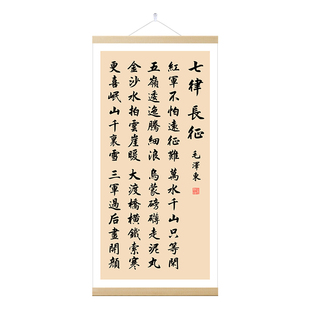 七律 長征
毛澤東
紅軍不怕遠征難 萬水千山只等閑
五嶺逶迤騰細浪 烏蒙磅礴走泥丸
金沙水拍雲崖暖 大渡橋橫鐵索寒
更喜岷山千裏雪 三軍過后盡開顏